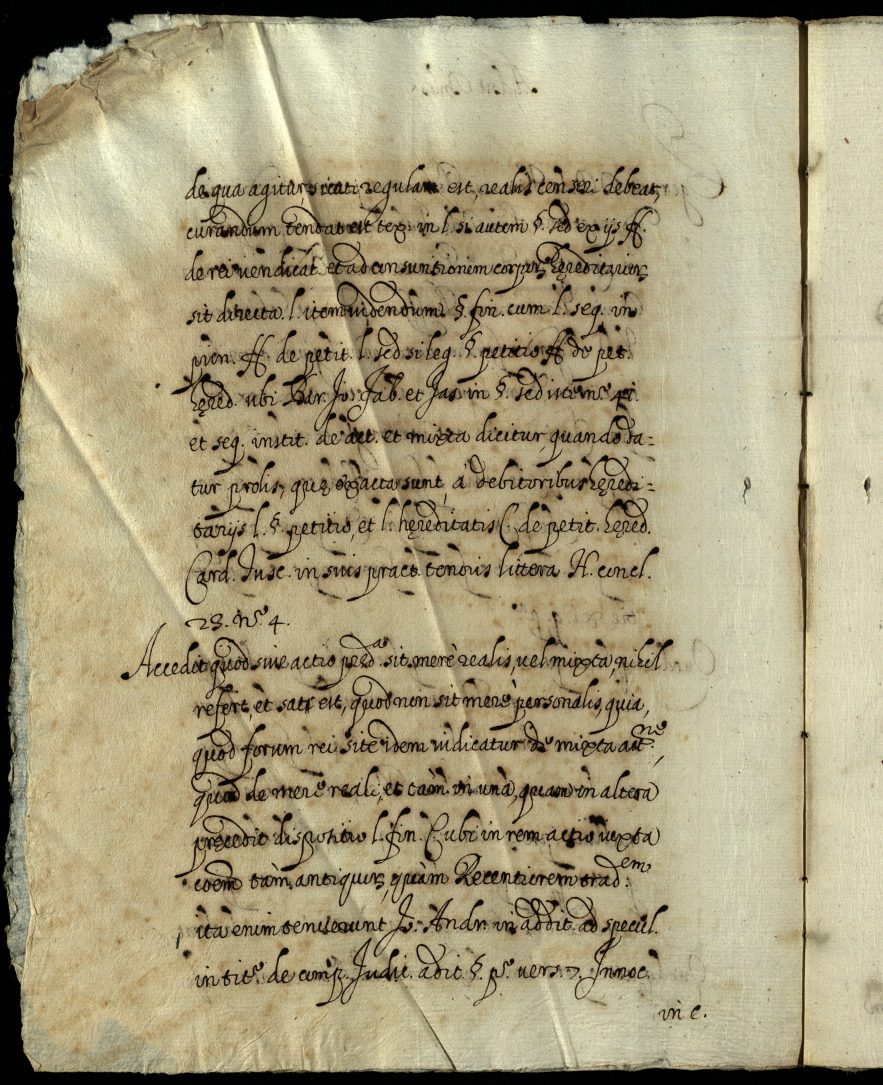 de qua agitur, sicuti regulare est, realis censeri debeat,
curandum tendat est tex. in l. si autem §. sed ex ijs ff.
de rei vendicat. et ad consuntionem corpor hęreditarior
sit directa. l. item videndum §. fin. cum l. seq. in
prin. ff. de petit. l. sed si leg. §. petitio ff de pet.
hęred. ubi Bar. Jo: Fab. et Jas. in §. sed iste nº 41.
et seq. instit. de act. et mixta dicitur, quando da=
tur prolis, quę exacta sunt, á debitoribus hęredi=
tarijs l. §. petitio, et l. hęreditatis C. de petit. hęred.
Card. Tusc. in suis pract. tenoris littera H. concl.
23. nº 4.
Accedit quod sive actio pred.ª sit merè realis, vel mixta, nihil
refert, et satis est, quod non sit merè personalis, quia,
quod forum rei sitę idem iudicatur de mixta actne,
quod de merè reali, et tam in una, quam in altera
precedit dispositio l. fin. C. ubi in rem actio iuxta
coem tàm antiquor, quàm Recentiorem tradem:
ita enim tenuerunt Jo: Andr. in addit. ad specul.
in titº de comp. Judic. adit §. pº vers. 7. Innoc.
in c.